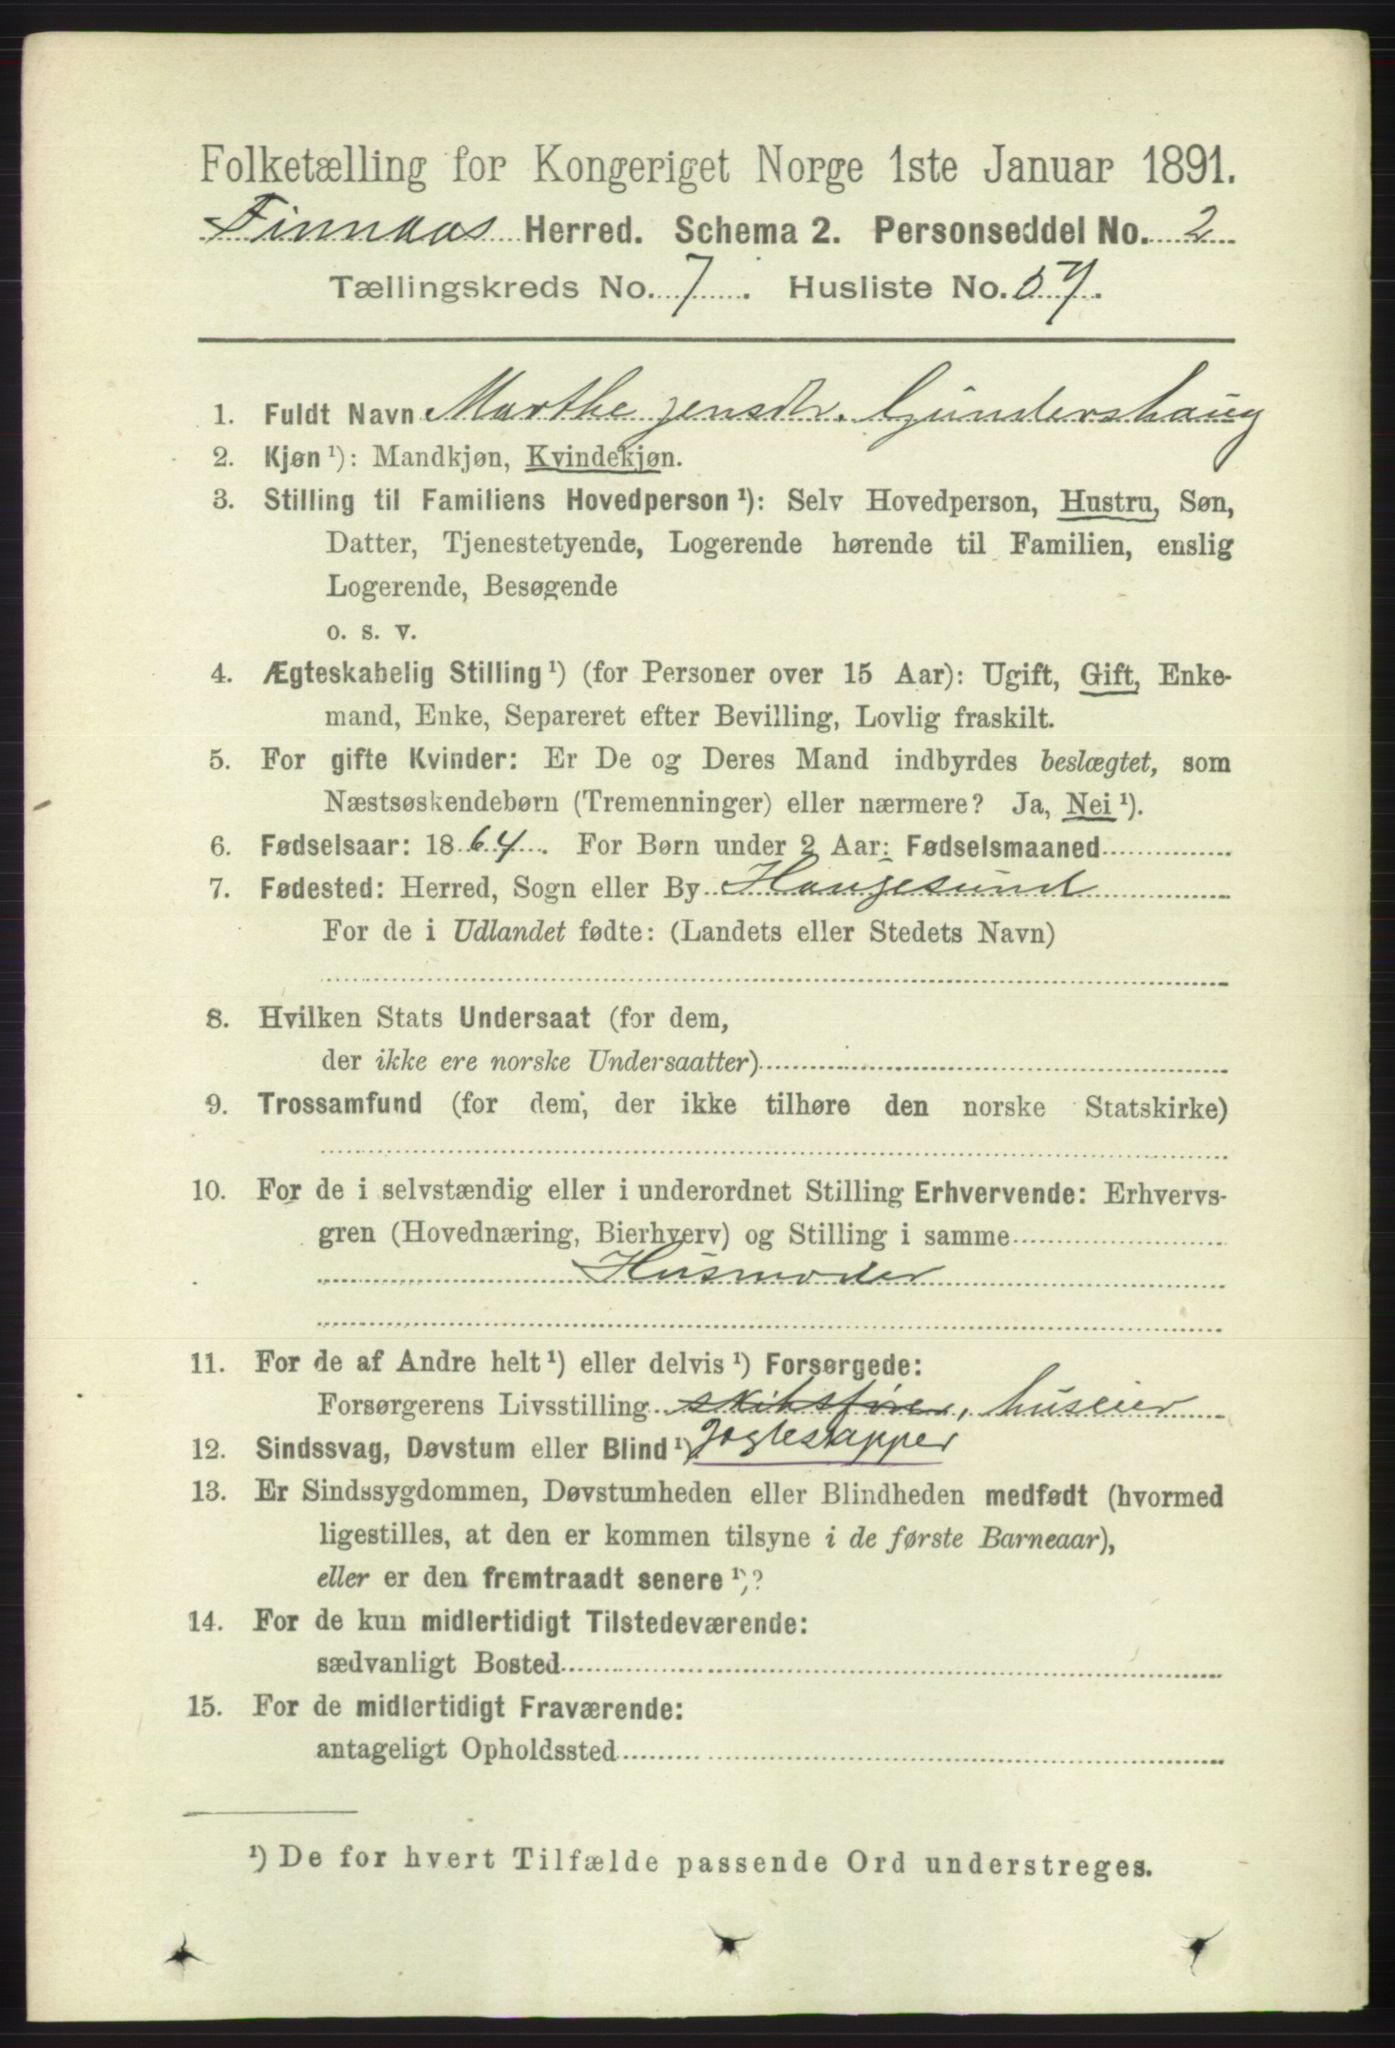 Folketælling for Kongeriget Norge 1ste Januar 1891.
Finnaas Herred. Schema 2. Personseddel No. 2
Tællingskreds No. 7. Husliste No. 57.
1. Fuldt Navn Marthe Jensdtr. Gundershaug
2. Kjøn ¹): Mandkjøn, Kvindekjøn.
3. Stilling til Familiens Hovedperson ¹): Selv Hovedperson, Hustru, Søn,
Datter, Tjenestetyende, Logerende hørende til Familien, enslig
Logerende, Besøgende
o. s. v.
4. Ægteskabelig Stilling ¹) (for Personer over 15 Aar): Ugift, Gift, Enke-
mand, Enke, Separeret efter Bevilling, Lovlig fraskilt.
5. For gifte Kvinder: Er De og Deres Mand indbyrdes beslægtet, som
Næstsøskendebørn (Tremenninger) eller nærmere? Ja, Nei ¹).
6. Fødselsaar: 1864. For Børn under 2 Aar: Fødselsmaaned
7. Fødested: Herred, Sogn eller By Haugesund
For de i Udlandet fødte: (Landets eller Stedets Navn)
8. Hvilken Stats Undersaat (for dem,
der ikke ere norske Undersaatter)
9. Trossamfund (for dem, der ikke tilhøre den norske Statskirke)
10. For de i selvstændig eller i underordnet Stilling Erhvervende: Erhvervs-
gren (Hovednæring, Bierhverv) og Stilling i samme
Husmoder
11. For de af Andre helt ¹) eller delvis ¹) Forsørgede:
Forsørgerens Livsstilling skibsfører, huseier
12. Sindssvag, Døvstum eller Blind ¹)
13. Er Sindssygdommen, Døvstumheden eller Blindheden medfødt (hvormed
ligestilles, at den er kommen tilsyne i de første Barneaar),
eller er den fremtraadt senere ¹)?
14. For de kun midlertidigt Tilstedeværende:
sædvanligt Bosted
15. For de midlertidigt Fraværende:
antageligt Opholdssted
¹) De for hvert Tilfælde passende Ord understreges.